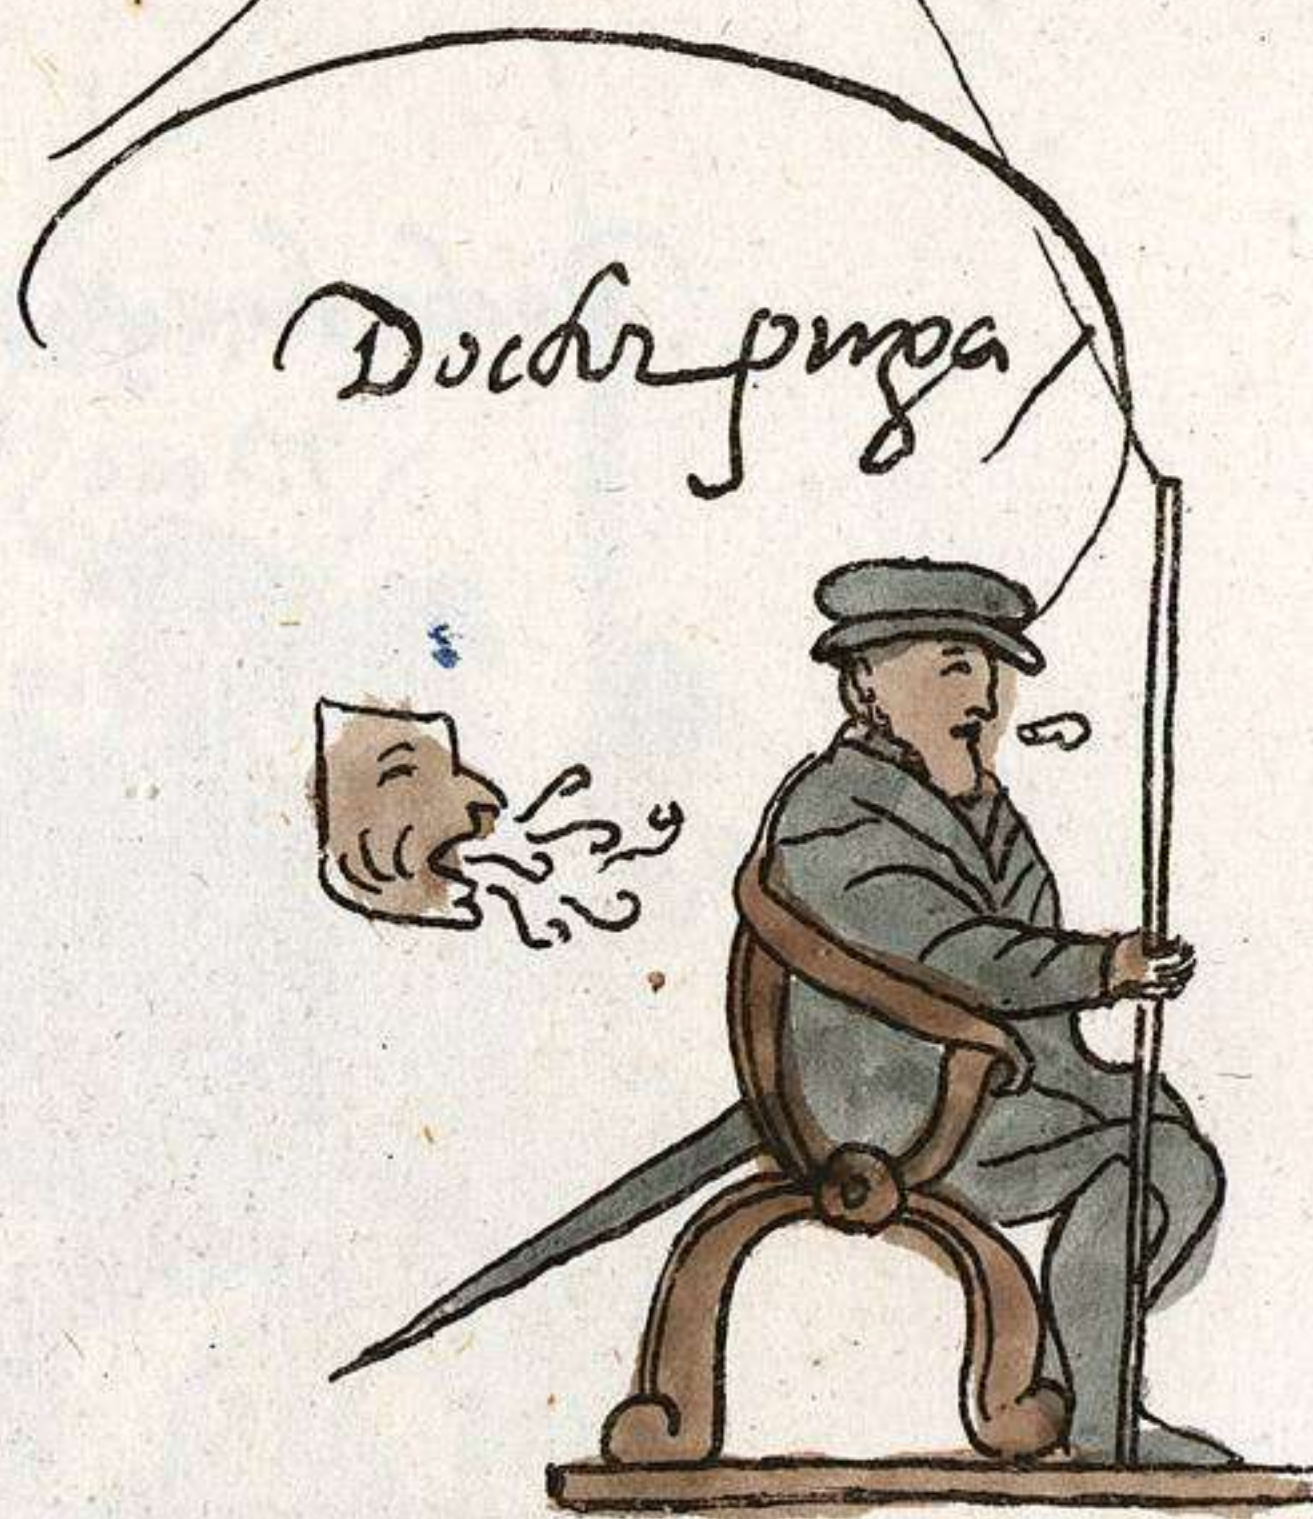 Doctor puga